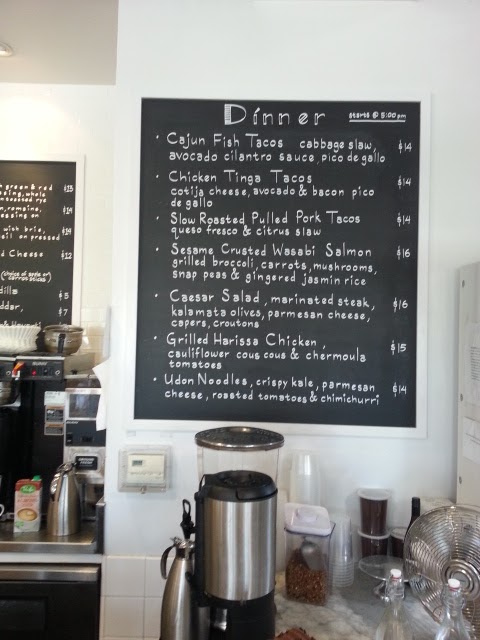 Dinner starts @ 5:00 pm
• Cajun Fish Tacos cabbage slaw, $14
avocado cilantro sauce, pico de gallo
• Chicken Tinga Tacos $14
cotija cheese, avocado & bacon pico
de gallo
• Slow Roasted Pulled Pork Tacos $14
queso fresco & citrus slaw
• Sesame Crusted Wasabi Salmon $16
grilled broccoli, carrots, mushrooms,
snap peas & gingered jasmin rice
• Caesar Salad, marinated steak, $16
kalamata olives, parmesan cheese,
capers, croutons
• Grilled Harissa Chicken, $15
cauliflower cous cous & chermoula
tomatoes
• Udon Noodles, crispy kale, parmesan $14
cheese, roasted tomatoes & chimichurri
green & red $13
whole
rye
$14
on
with brie, $14
on pressed
Cheese $12
(choice of apple or
carrot sticks)
$5
$7